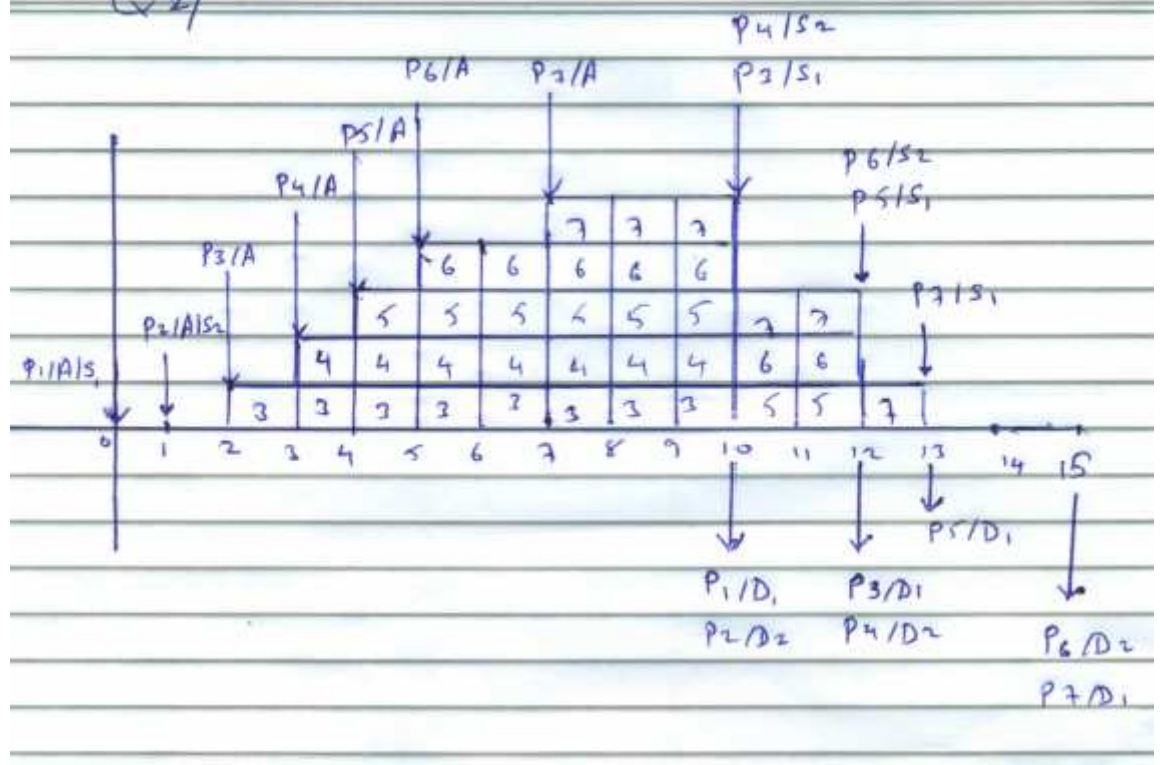 Q2)
P4/S2
P6/A P7/A P3/S1
P5/A
P6/S2
P4/A P5/S1
7 7 7
P3/A 6 6 6 6 6
P7/S1
P2/A/S2 5 5 5 5 5 5 7 7
P1/A/S1 4 4 4 4 4 4 4 6 6
3 3 3 3 3 3 3 3 5 5 7
0 1 2 3 4 5 6 7 8 9 10 11 12 13 14 15
P5/D1
P1/D1 P3/D1
P2/D2 P4/D2 P6/D2
P7/D1